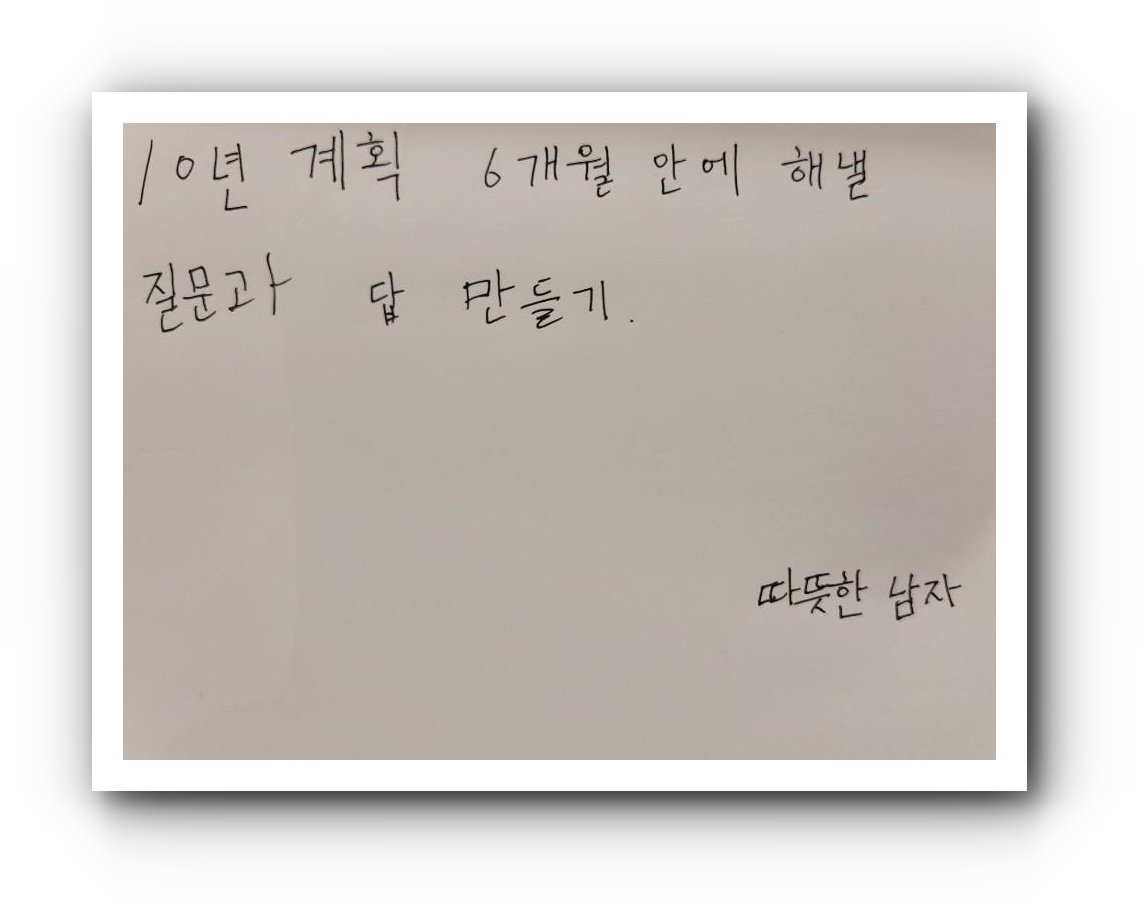 10년 계획 6개월 안에 해낼
질문과 답 만들기.
따뜻한 남자